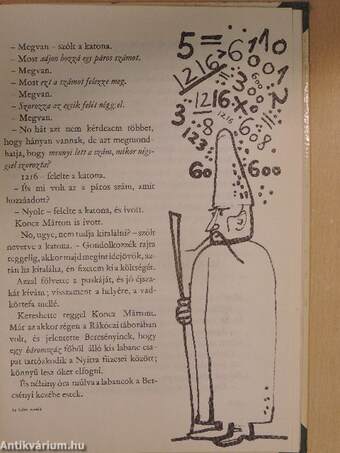 – Megvan – szólt a katona.
– Most adjon hozzá egy páros számot.
– Megvan.
– Most ezt a számot felezze meg.
– Megvan.
– Szorozza az egyik felét néggyel.
– Megvan.
– No hát azt nem kérdezem többet,
hogy hányan vannak, de azt megmond-
hatja, hogy mennyi lett a szám, mikor négy-
gyel szorozta?
1216 – felelte a katona.
– És mi volt az a páros szám, amit
hozzáadott?
– Nyolc – felelte a katona, és ivott.
Koncz Márton is ivott.
– No, ugye, nem tudja kitalálni? – szólt
nevetve a katona. – Gondolkozzék rajta
reggelig, akkor majd megint idejövök, az-
tán ha kitalálta, én fizetem ki a költségét.
Azzal fölvette a puskáját, és jó éjsza-
kát kívánt; visszament a helyére, a vad-
körtefa mellé.
Kereshette reggel Koncz Mártont.
Már az akkor régen a Rákóczi táborában
volt, és jelentette Bercsényinek, hogy
egy háromszáz főből álló kis labanc csa-
pat tartózkodik a Nyitra füzesei között;
könnyű lesz őket elfogni.
És néhány óra múlva a labancok a Ber-
csényi kezébe estek.
5 = 6 110
1216 6001
300
3 1216 x 0 2
8 1216
123 6
60 600
Antikvárium.hu